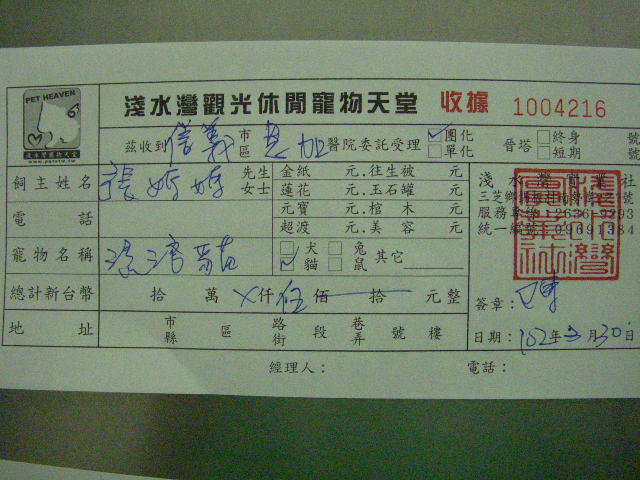 PET HEAVEN
淺水灣寵物天堂
淺水灣觀光休閒寵物天堂 收據 1004216
茲收到 信義 市區 恩加 醫院委託受理 ✓團化 單化 晉塔 終身 號 短期 號
飼主姓名 張婷婷 先生 女士 金紙 元.往生被 元
蓮花 元.玉石罐 元
電話 元寶 元.棺木 元
超渡 元.美容 元
寵物名稱 貓 犬 兔 ✓貓 鼠 其它
淺水灣實業社
三芝鄉 號
服務專線:2636-9293
統一編號:09691384
總計新台幣 拾 萬 X仟 伍佰 拾 元整
簽章: 陳
地址 市縣 區 路街 段 巷弄 號 樓
日期: 102年 月30日
經理人: 電話: